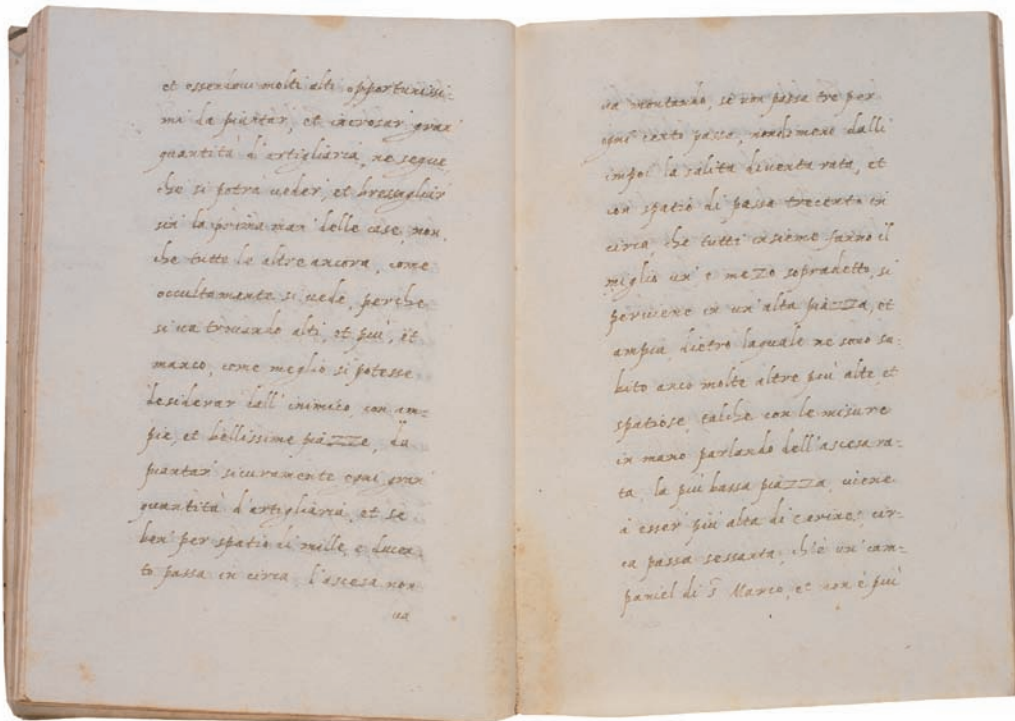 et essendoui molti alti opportunissi-
mi da piantar, et incrosar gran
quantità d'artigliaria, ne segue
che si potrà ueder, et bressagliar
sin la prima man delle case, non
che tutte le altre ancora, come
occultamente si uede, perche
si ua trouando alti, et più, et
manco, come meglio si potesse
desiderar dall' inimico, con am-
pie, et bellissime piazze, da
piantar sicuramente ogni gran
quantità d'artigliaria, et se
ben per spatio di mille, e ducen-
to passa in circa, l'ascesa non
ua
ua montando, se non passa tre per
ogni cento passa, nondimeno dalli
impoi la salita diuenta rata, et
con spatio di passa trecento in
circa, che tutti insieme fanno il
miglio un' e mezo sopradetto, si
peruiene in un' alta piazza, et
ampia, dietro laquale ne sono su-
bito anco molte altre più alte, et
spatiose, talche con le misure
in mano parlando dell'ascesa ra-
ta, la più bassa piazza, uiene
à esser più alta di Carines cir-
ca passa sessanta, ch'è un' cam-
paniel di S. Marco, et non è più